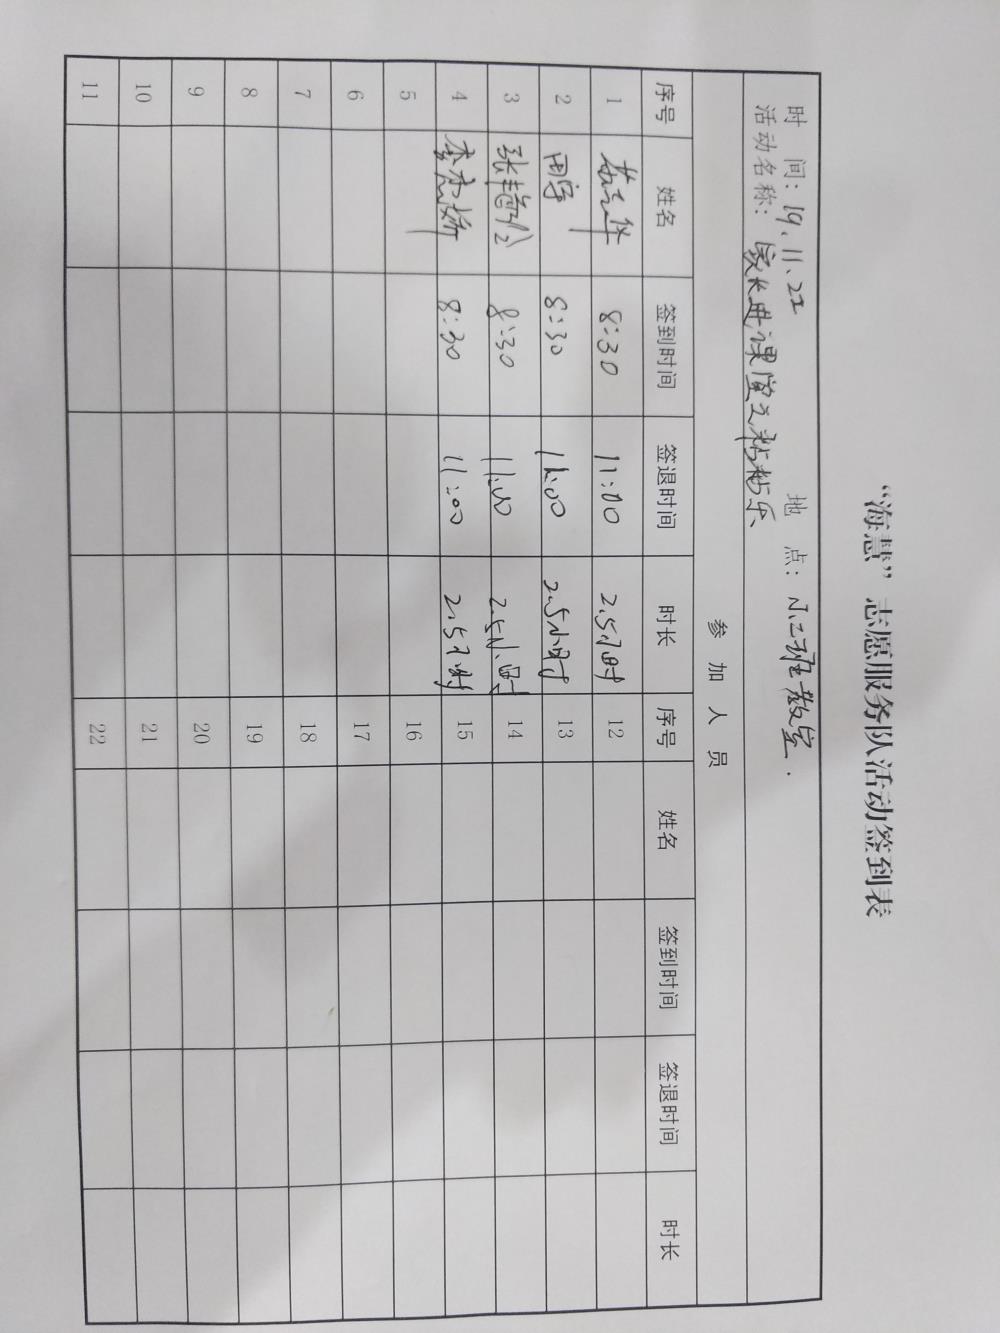 “海慧”志愿服务队活动签到表
时 间：19.11.22 地 点：小二班教室.
活动名称：家长进课堂之粘粘乐
参 加 人 员
序号 姓名 签到时间 签退时间 时长 序号 姓名 签到时间 签退时间 时长
1 8:30 11:00 2.5小时 12
2 田宇 8:30 11:00 2.5小时 13
3 8:30 11:00 2.5小时 14
4 8:30 11:00 2.5小时 15
5 16
6 17
7 18
8 19
9 20
10 21
11 22